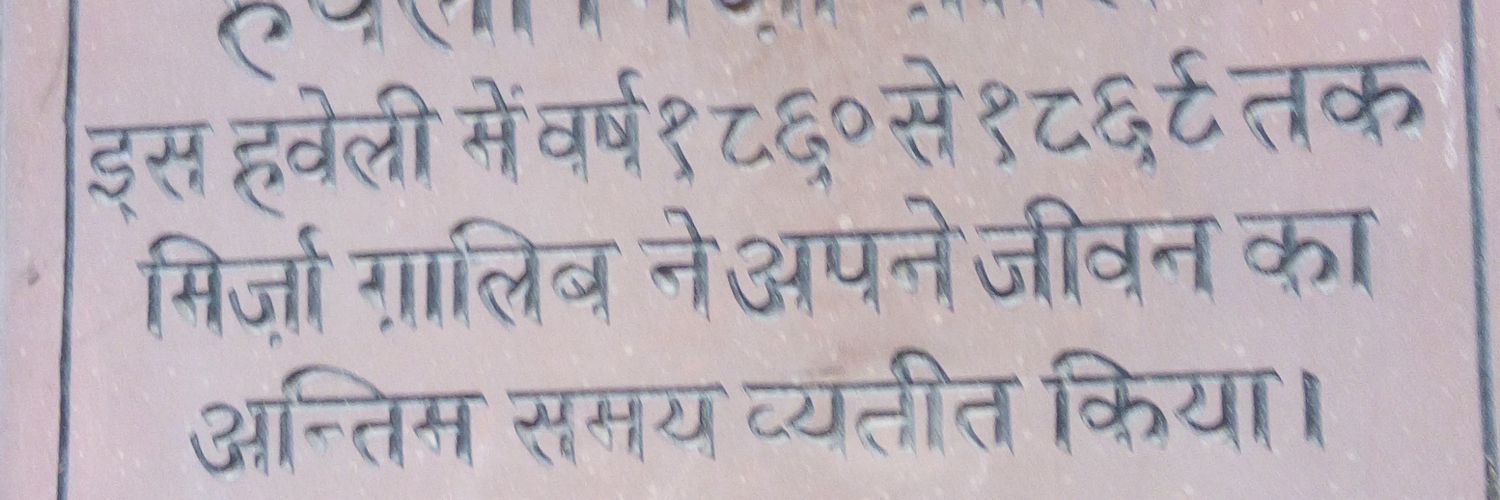 इस हवेली में वर्ष १८६० से १८६९ तक
मिर्ज़ा ग़ालिब ने अपने जीवन का
अन्तिम समय व्यतीत किया।